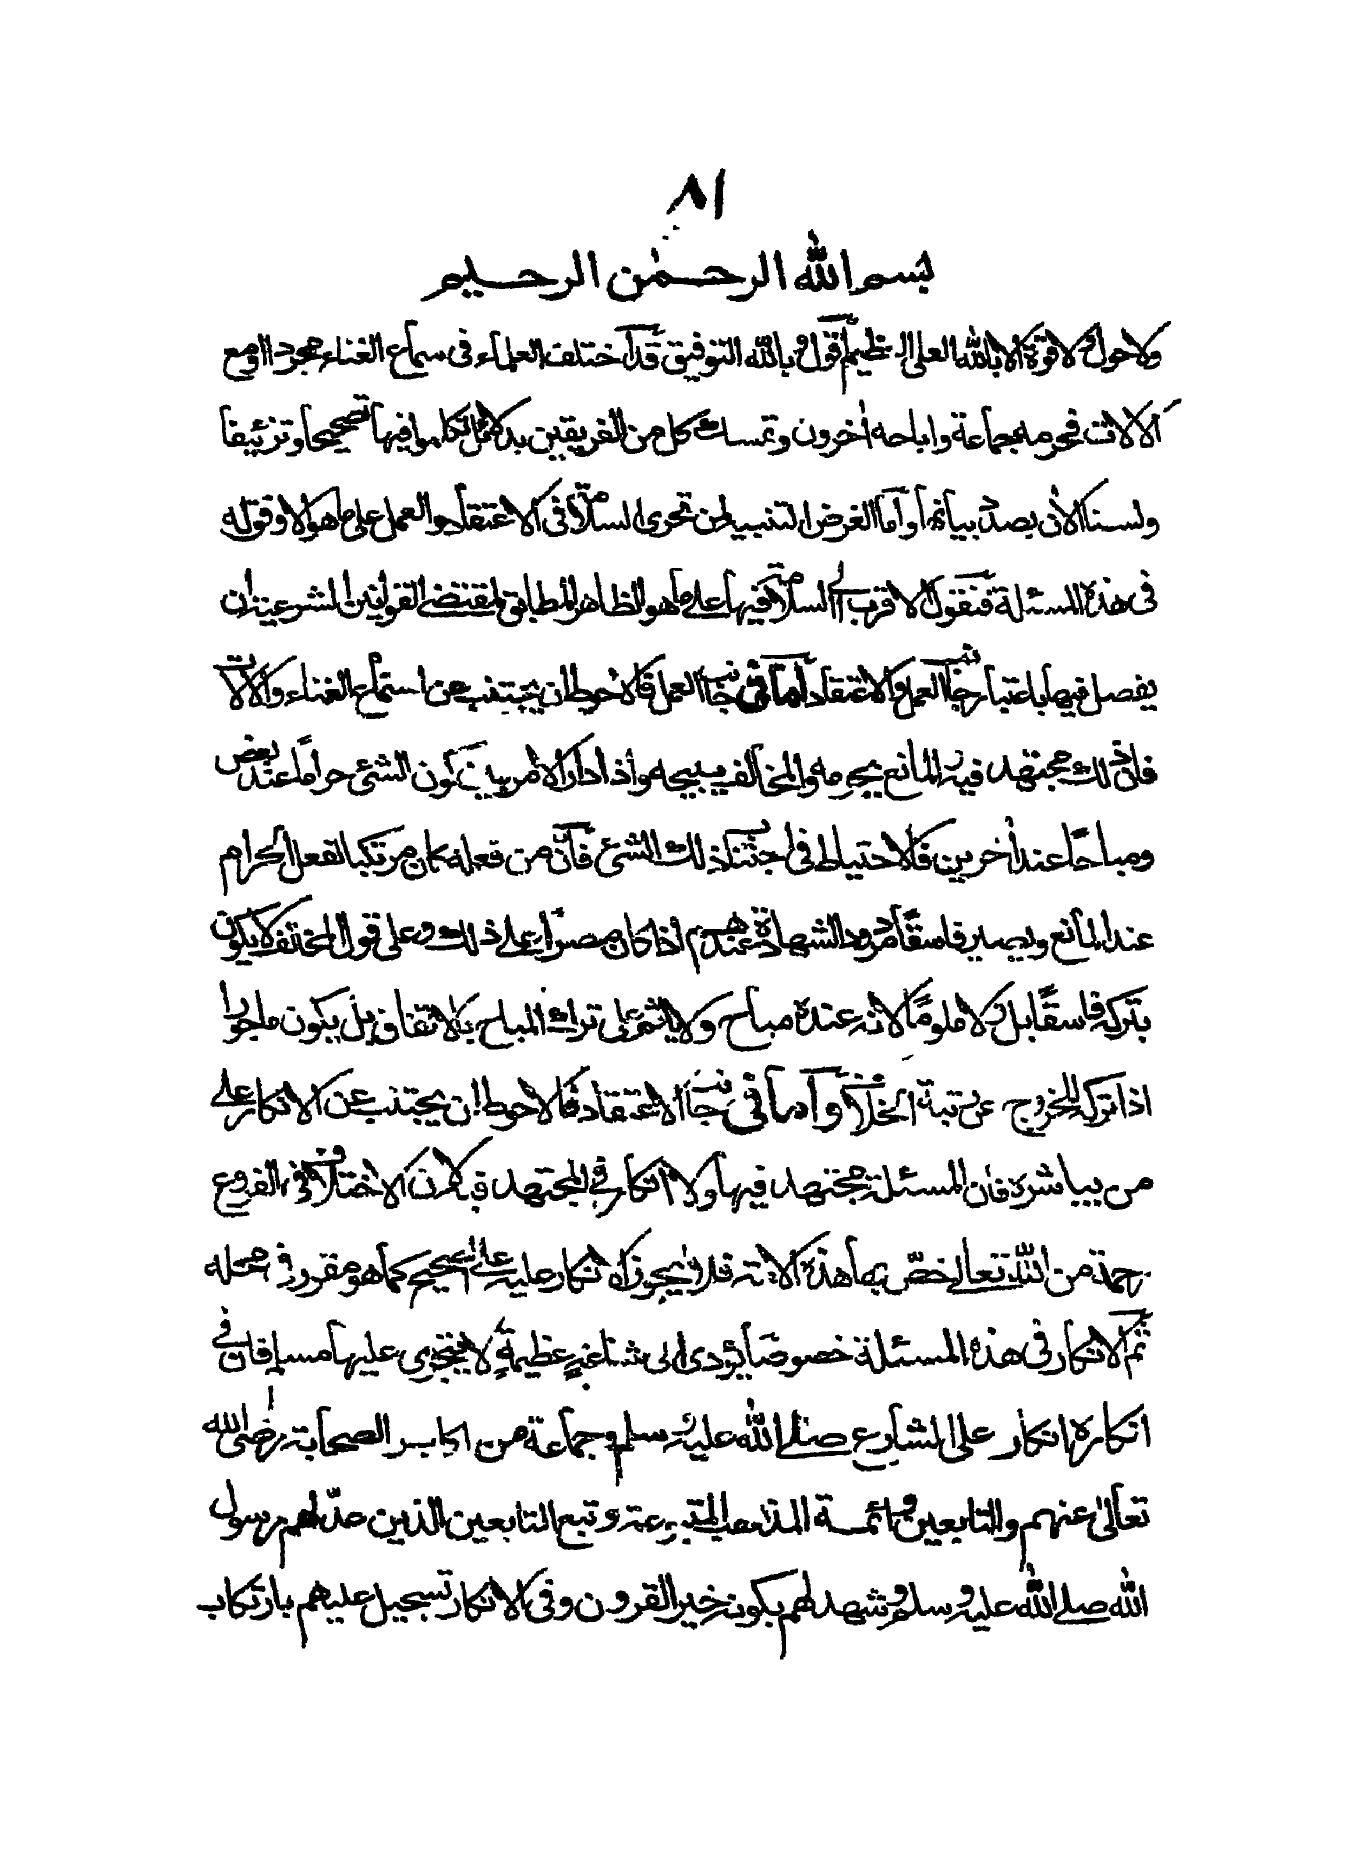 ٨١
بسم الله الرحمٰن الرحيم
ولا حول ولا قوة الا بالله العلى العظيم اقول وبالله التوفيق قد اختلف العلماء فى سماع الغناء مجردا او مع
الالات فحرمه جماعة واباحه اخرون وتمسك كل من الفريقين بدلائل تكلموا فيها تصحيحا وتزئيفا
ولسنا الان بصدد بيانها وانما الغرض التنبيه لمن تحرى السلامة فى الاعتقاد والعمل على ما هو الاوقوله
فى هذه المسئلة فنقول الاقرب الى السلامة فيها على ما هو الظاهر المطابق لمقتضى القوانين الشرعية ان
يفصل فيها باعتبار جانب العمل والاعتقاد اما فى جانب العمل فالاحوط ان يجتنب عن استماع الغناء والالات
فان ذلك مجتهد فيه المانع يحرمه والمخالف يبيحه واذا دار الامر بين كون الشئ حراما عند بعض
ومباحا عند اخرين فالاحتياط فى اجتناب ذلك الشئ فان من فعله كان مرتكبا لفعل الحرام
عند المانع ويصير فاسقا مردود الشهادة عندهم اذا كان مصرا على ذلك وعلى قول المختلف لا يكون
بتركه فاسقا بل ولا ملوما لانه عنده مباح ولا ياثم على ترك المباح بالاتفاق بل يكون ماجورا
اذا تركه للخروج عن ربقة الخلاف واما فى جانب الاعتقاد فالاحوط ان يجتنب عن الانكار على
من يباشره فان المسئلة مجتهد فيها ولا انكار فى المجتهد فيه لان الاختلاف فى الفروع
رحمة من الله تعالى خصّ بها هذه الامة فلا يجوز الانكار عليه على الصحيح كما هو مقرر فى محله
ثم الانكار فى هذه المسئلة خصوصا يؤدى الى شناعةٍ عظيمةٍ لا يجترى عليها مسلم فان فى
انكاره انكار على الشارع صلى الله عليه وسلم وجماعة من اكابر الصحابة رضى الله
تعالى عنهم والتابعين وائمة المذاهب المتبوعة وتبع التابعين الذين عدّلهم رسول
الله صلى الله عليه وسلم وشهد لهم بكونه خير القرون وفى الانكار تسجيل عليهم بارتكاب